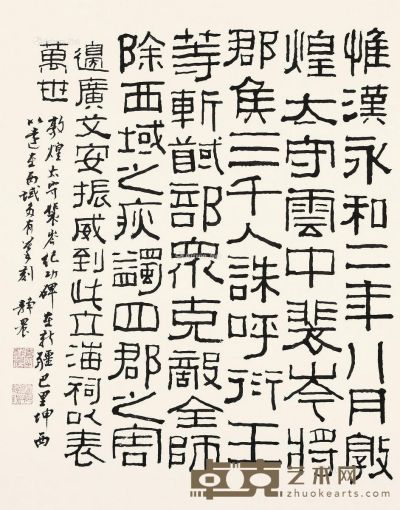 惟漢永和二年八月敦
煌太守雲中裴岑將
郡侯三千人誅呼衍王
等斬馘部衆克敵全師
除西域之疢蠲四郡之害
邊廣文安振威到此立海祠以表
萬世
敦煌太守裴岑紀功碑在新疆巴里坤西
在西域 刻 靜農
卓克艺术网
zhuokearts.com